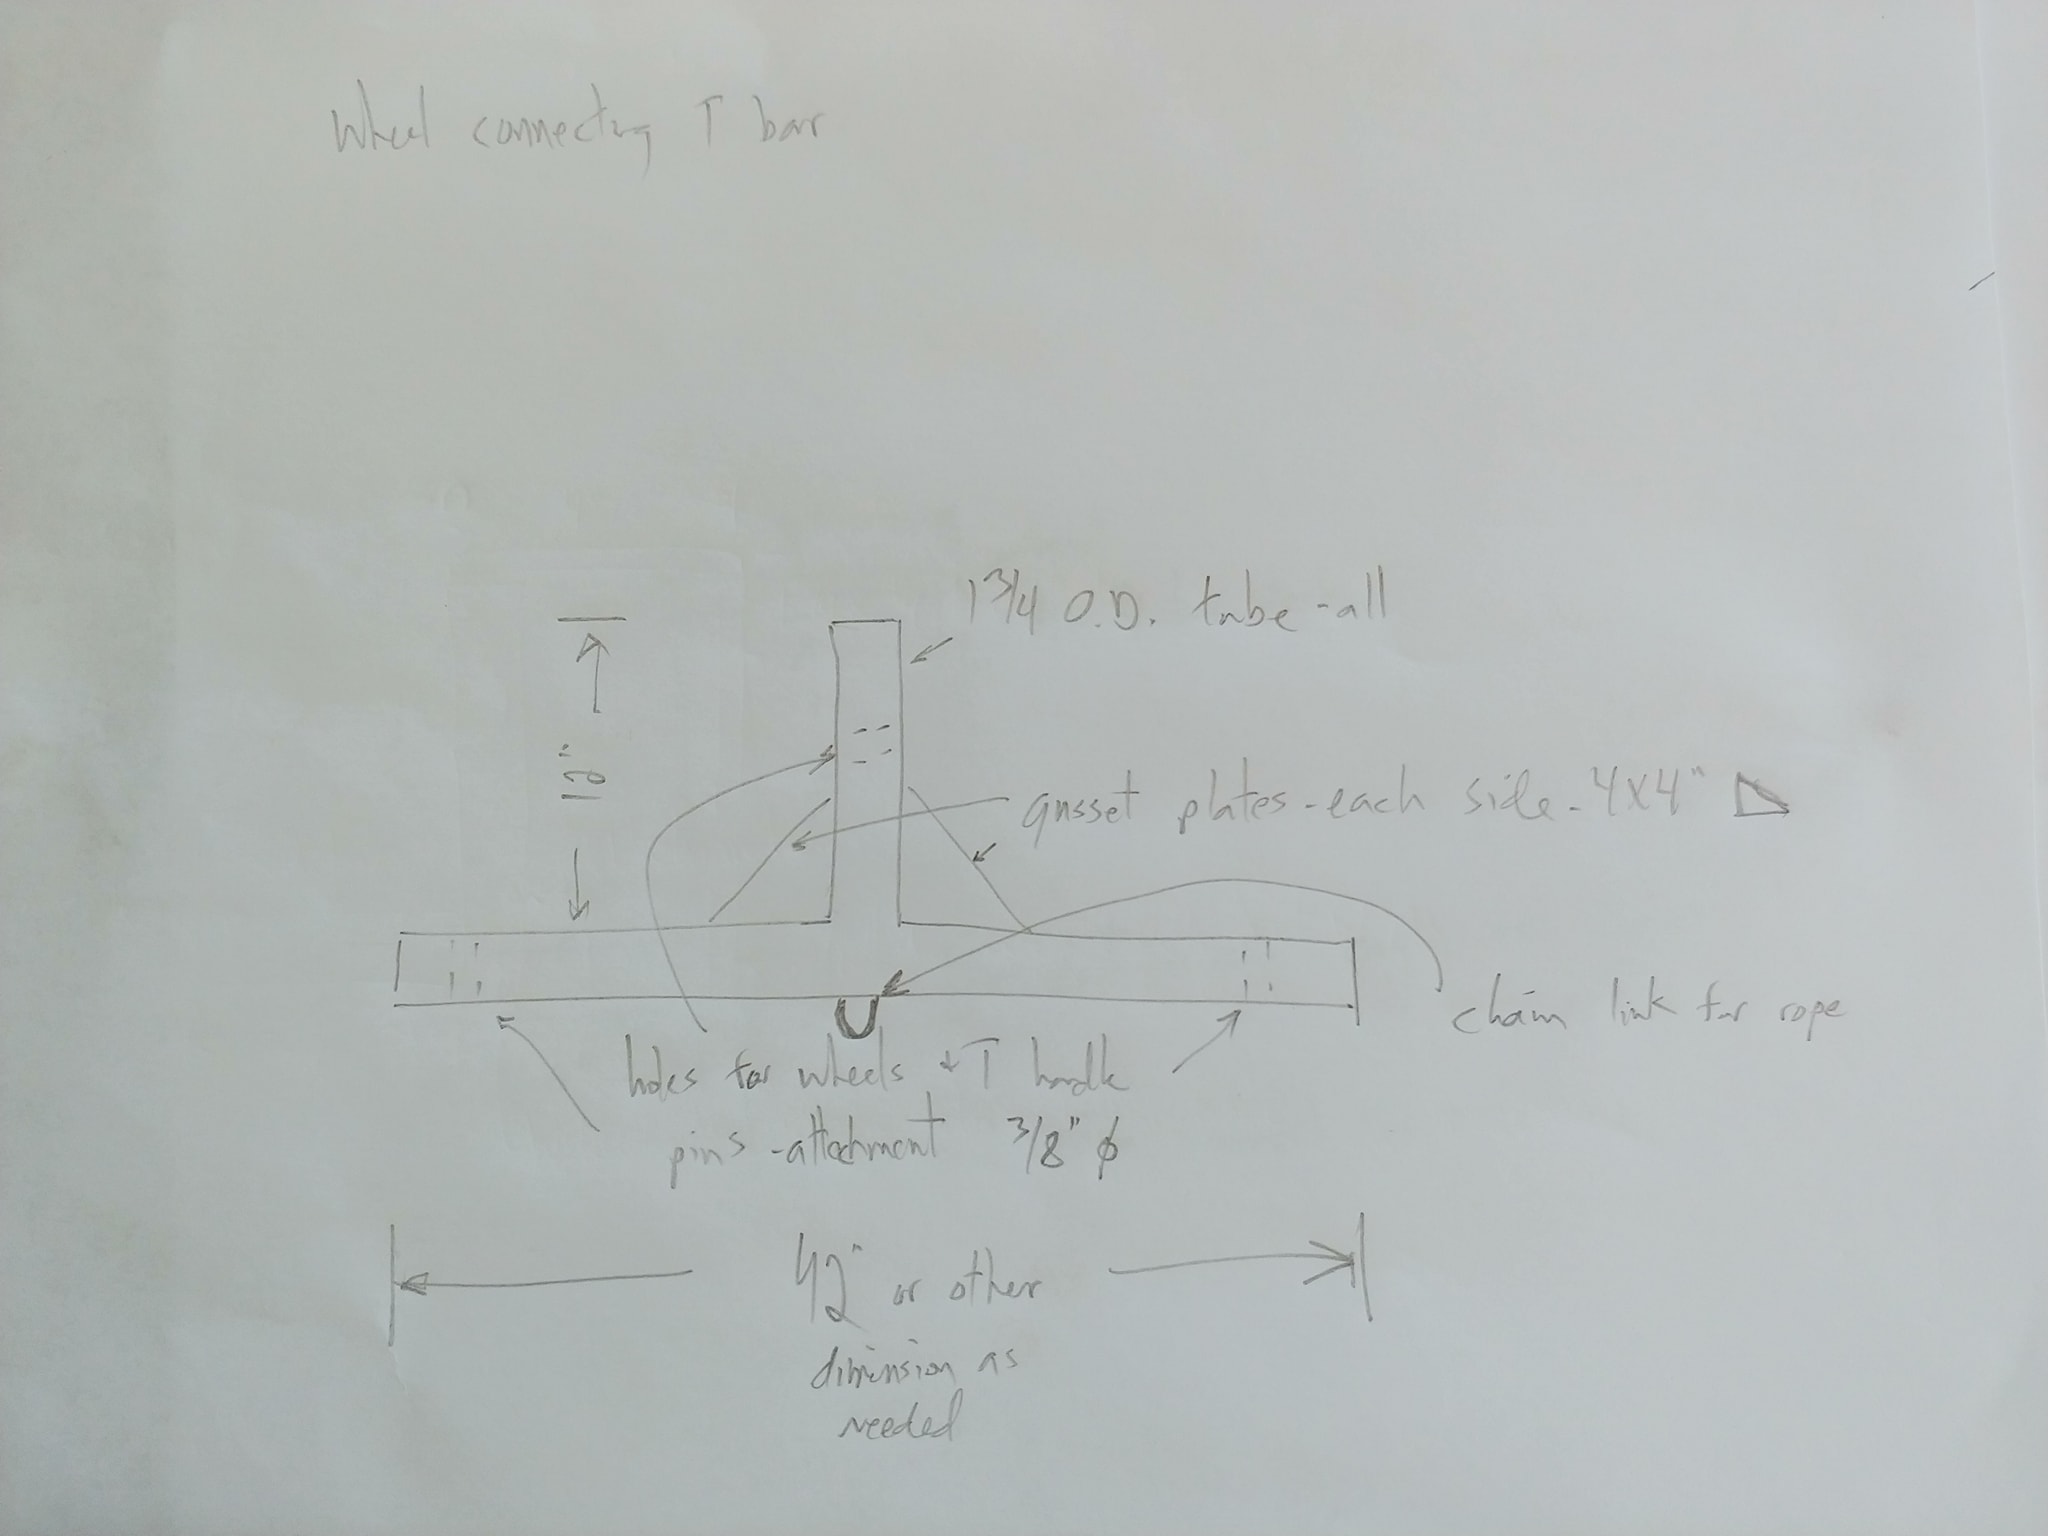 Wheel connecting T bar
1 3/4 O.D. tube - all
12"
gusset plates - each side - 4x4"
chain link for rope
holes for wheels + T handle
pins - attachment 3/8" ϕ
42" or other
dimension as
needed